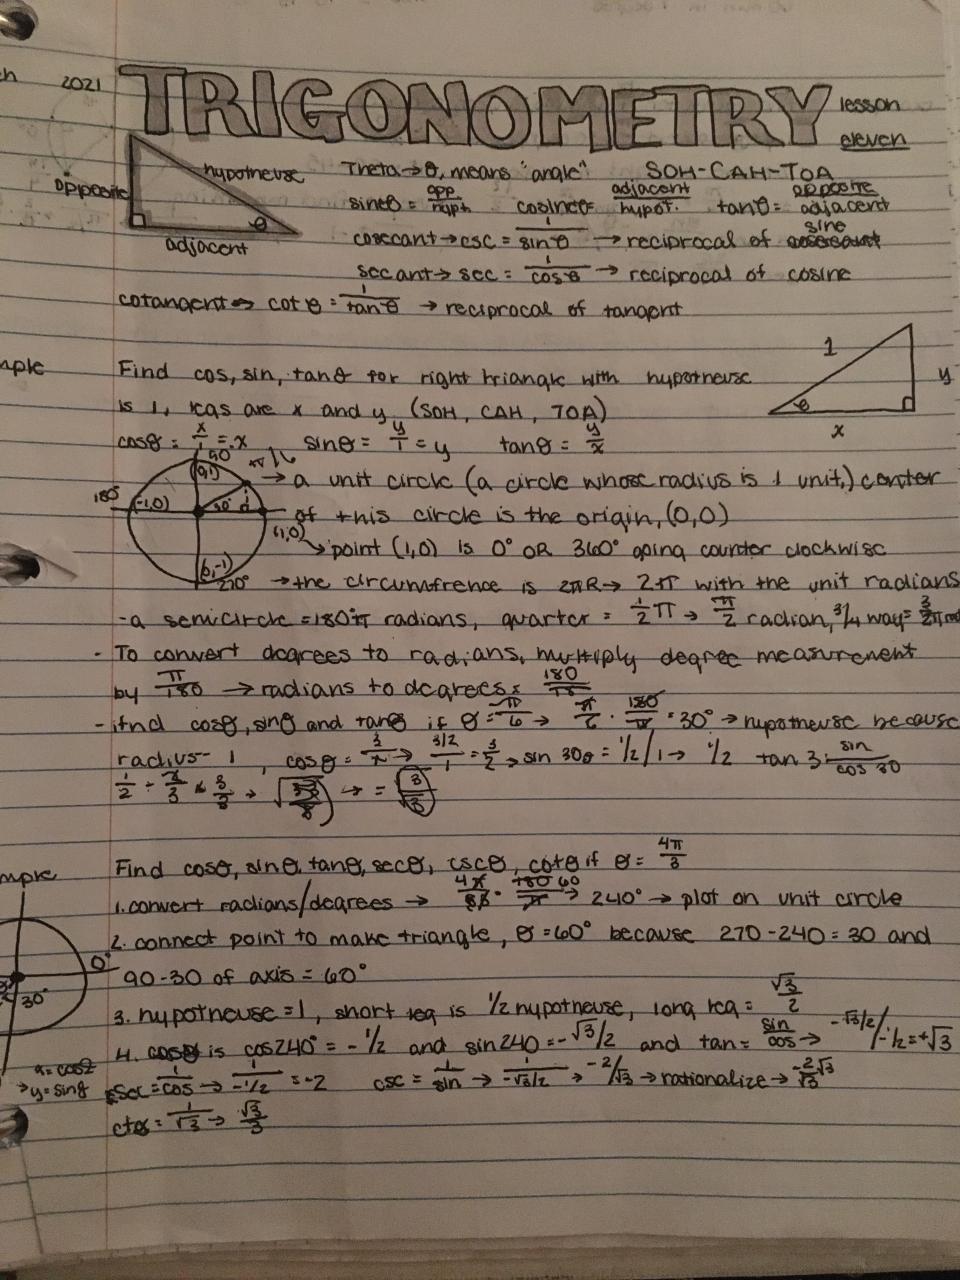 2021
TRIGONOMETRY
lesson
eleven
opposite
hypotneuse
adjacent
θ
Theta → θ, means "angle" SOH-CAH-TOA
sineθ = opp/hyph cosineθ = adjacent/hypot. tanθ = opposite/adjacent
cosecant → csc = 1/sinθ → reciprocal of sine
secant → sec = 1/cosθ → reciprocal of cosine
cotangent → cotθ = 1/tanθ → reciprocal of tangent
mple
Find cos, sin, tanθ for right triangle with hypotneuse
is 1, legs are x and y (SOH, CAH, TOA)
1
y
θ
x
cosθ = x/1 = x, sinθ = y/1 = y tanθ = y/x
90
180°
(-1,0)
30°
(1,0)
(0,-1)
270°
→ a unit circle (a circle whose radius is 1 unit,) center
of this circle is the origin, (0,0)
→ point (1,0) is 0° OR 360° going counter clockwise
→ the circumfrence is 2πR → 2π with the unit radians
- a semicircle = 180° π radians, quarter = 1/2 π → π/2 radian, 3/4 way = 3/2 π
- To convert degrees to radians, multiply degree measurement
by π/180 → radians to degrees = 180/π
- find cosθ, sinθ and tanθ if θ = π/6 → π/6 · 180/π = 30° → hypotneuse because
radius = 1, cosθ = → 3/2/1 = 3/2 → sin 30θ = 1/2/1 → 1/2 tan 3 sin/cos 30
1/2 ÷
mple
Find cosθ, sinθ, tanθ, secθ, cscθ, cotθ if θ = 4π/3
1. convert radians/degrees → 4π/3 · 180 60/π → 240° → plot on unit circle
2. connect point to make triangle, θ = 60° because 270 - 240 = 30 and
90 - 30 of axis = 60°
0°
30°
3. hypotneuse = 1, short leg is 1/2 hypotneuse, long leg = √3/2
4. cosθ is cos240° = -1/2 and sin240 = -√3/2 and tan = sin/cos → -√3/2/-1/2 = +√3
x = cosθ
→ y = sinθ
sec = 1/cos → 1/-1/2 = -2 csc = 1/sin → 1/-√3/2 → -2/√3 → rationalize → -2√3/√3
ctθ = 1/√3 → √3/3